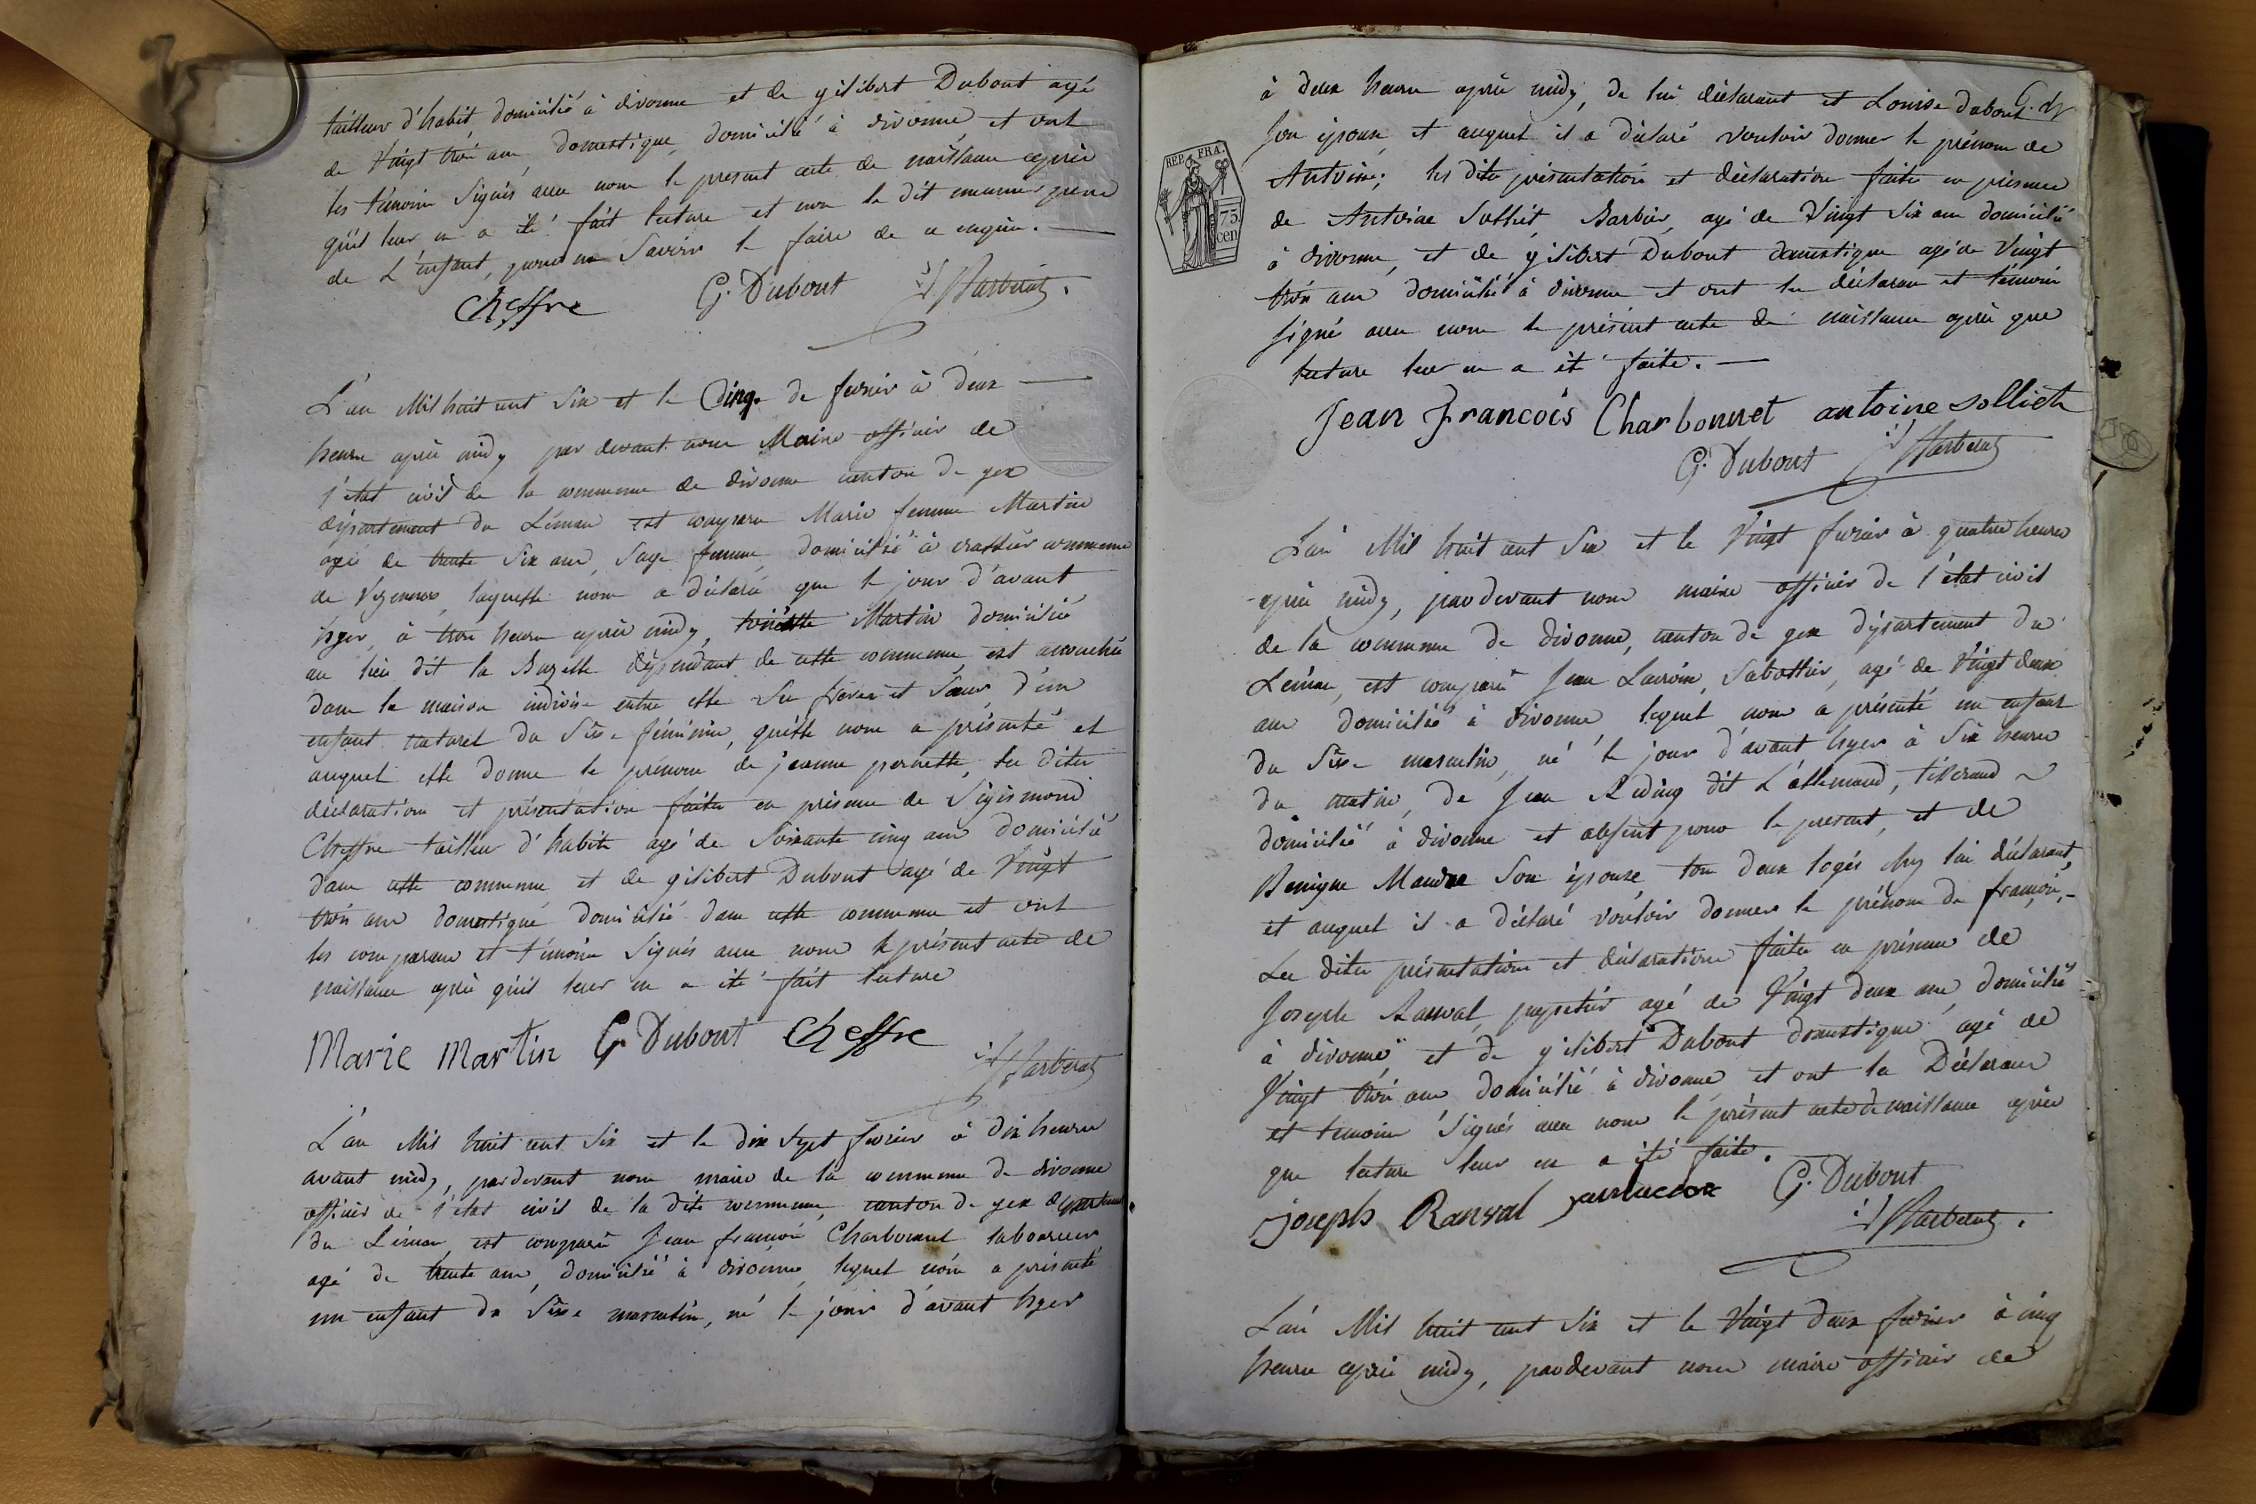 tailleur d'habit domicilié à divonne et de gilibert Dubout agé
de Vingt trois ans, domestique, domicilié à divonne et ont
les témoins Signés avec nous le present acte de naissance après
qu'il leur en a été fait lecture et non le dit
de L'enfant, pour ne Savoir le faire de ce enquis.
Cheffre G. Dubout
L'an Mil huit cent Six et le Cinq. de fevrier à deux
heures après midy par devant nous Maire officier de
l'état civil de la commune de divonne canton de gex
département du Léman est comparu Marie femme Martin
agé de trente Six ans, Sage femme, domicilié à crassier commune
de Vezenex, laquelle nous a déclaré que le jour d'avant
hyer, à trois heures après midy, Martin domicilié
au lieu dit la dépendant de cette commune, est accouchée
dans la maison indivise entre elle Ses freres et Sœurs, d'un
enfant naturel du Sèxe féminin, qu'elle nous a présenté et
auquel elle donne le prénom de jeanne pernette, les dites
déclaration et présentation faites en présence de Sigismond
Cheffre tailleur d'habits agé de Soixante cinq ans domicilié
dans cette commune et de gilibert Dubout agé de Vingt
trois ans domestique domicilié dans cette commune et ont
les comparans et témoins Signés avec nous le présent acte de
naissance après qu'il leur en a été fait lecture
Marie Martin G. Dubout Cheffre
L'an Mil huit cent Six et le dix Sept fevrier à dix heures
avant midy, pardevant nous maire de la commune de divonne
officier de l'état civil de la dite commune, canton de gex département
du Léman, est comparu Jean françois Charbonnet laboureur
agé de trente ans, domicilié à divonne, lequel nous a présenté
un enfant du Sèxe masculin, né le jour d'avant hyer
à deux heures après midy, de lui déclarant et Louise dubout G. D
Son épouse, et auquel il a déclaré vouloir donner le prénom de
Antoine; les dites présentation et déclaration faites en présence
de Antoine Solliet, Barbier, agé de Vingt Six ans domicilié
à divonne, et de gilibert Dubout domestique agé de Vingt
trois ans domicilié à divonne et ont les déclarans et témoins
Signé avec nous le présent acte de naissance après que
lecture leur en a été faite.
REP. FRA.
75
cen
Jean Francois Charbonnet antoine solliet
G. Dubout
L'an Mil huit cent Six et le Vingt fevrier à quatre heures
après midy, pardevant nous maire officier de l'état civil
de la commune de divonne, canton de gex département du
Léman, est comparu Jean Lacroix, Sabottier, agé de Vingt deux
ans domicilié à divonne, lequel nous a présenté un enfant
du Sèxe masculin, né le jour d'avant hyer à Six heures
du matin, de Jean Reding dit L'allemand, tisserand
domicilié à divonne et absent pour le present, et de
Benigne Son épouse, tous deux logés chez lui déclarant,
et auquel il a déclaré vouloir donner le prénom de françois,
Les dites présentation et déclaration faites en présence de
Joseph Ranval, papetier agé de Vingt deux ans, domicilié
à divonne, et de gilibert Dubout domestique agé de
Vingt trois ans domicilié à divonne et ont les Déclarans
et temoins Signés avec nous le présent acte de naissance après
que lecture leur en a été faite.
joseph Ranval G. Dubout
L'an Mil huit cent Six et le Vingt deux fevrier à cinq
heures après midy, pardevant nous maire officier de